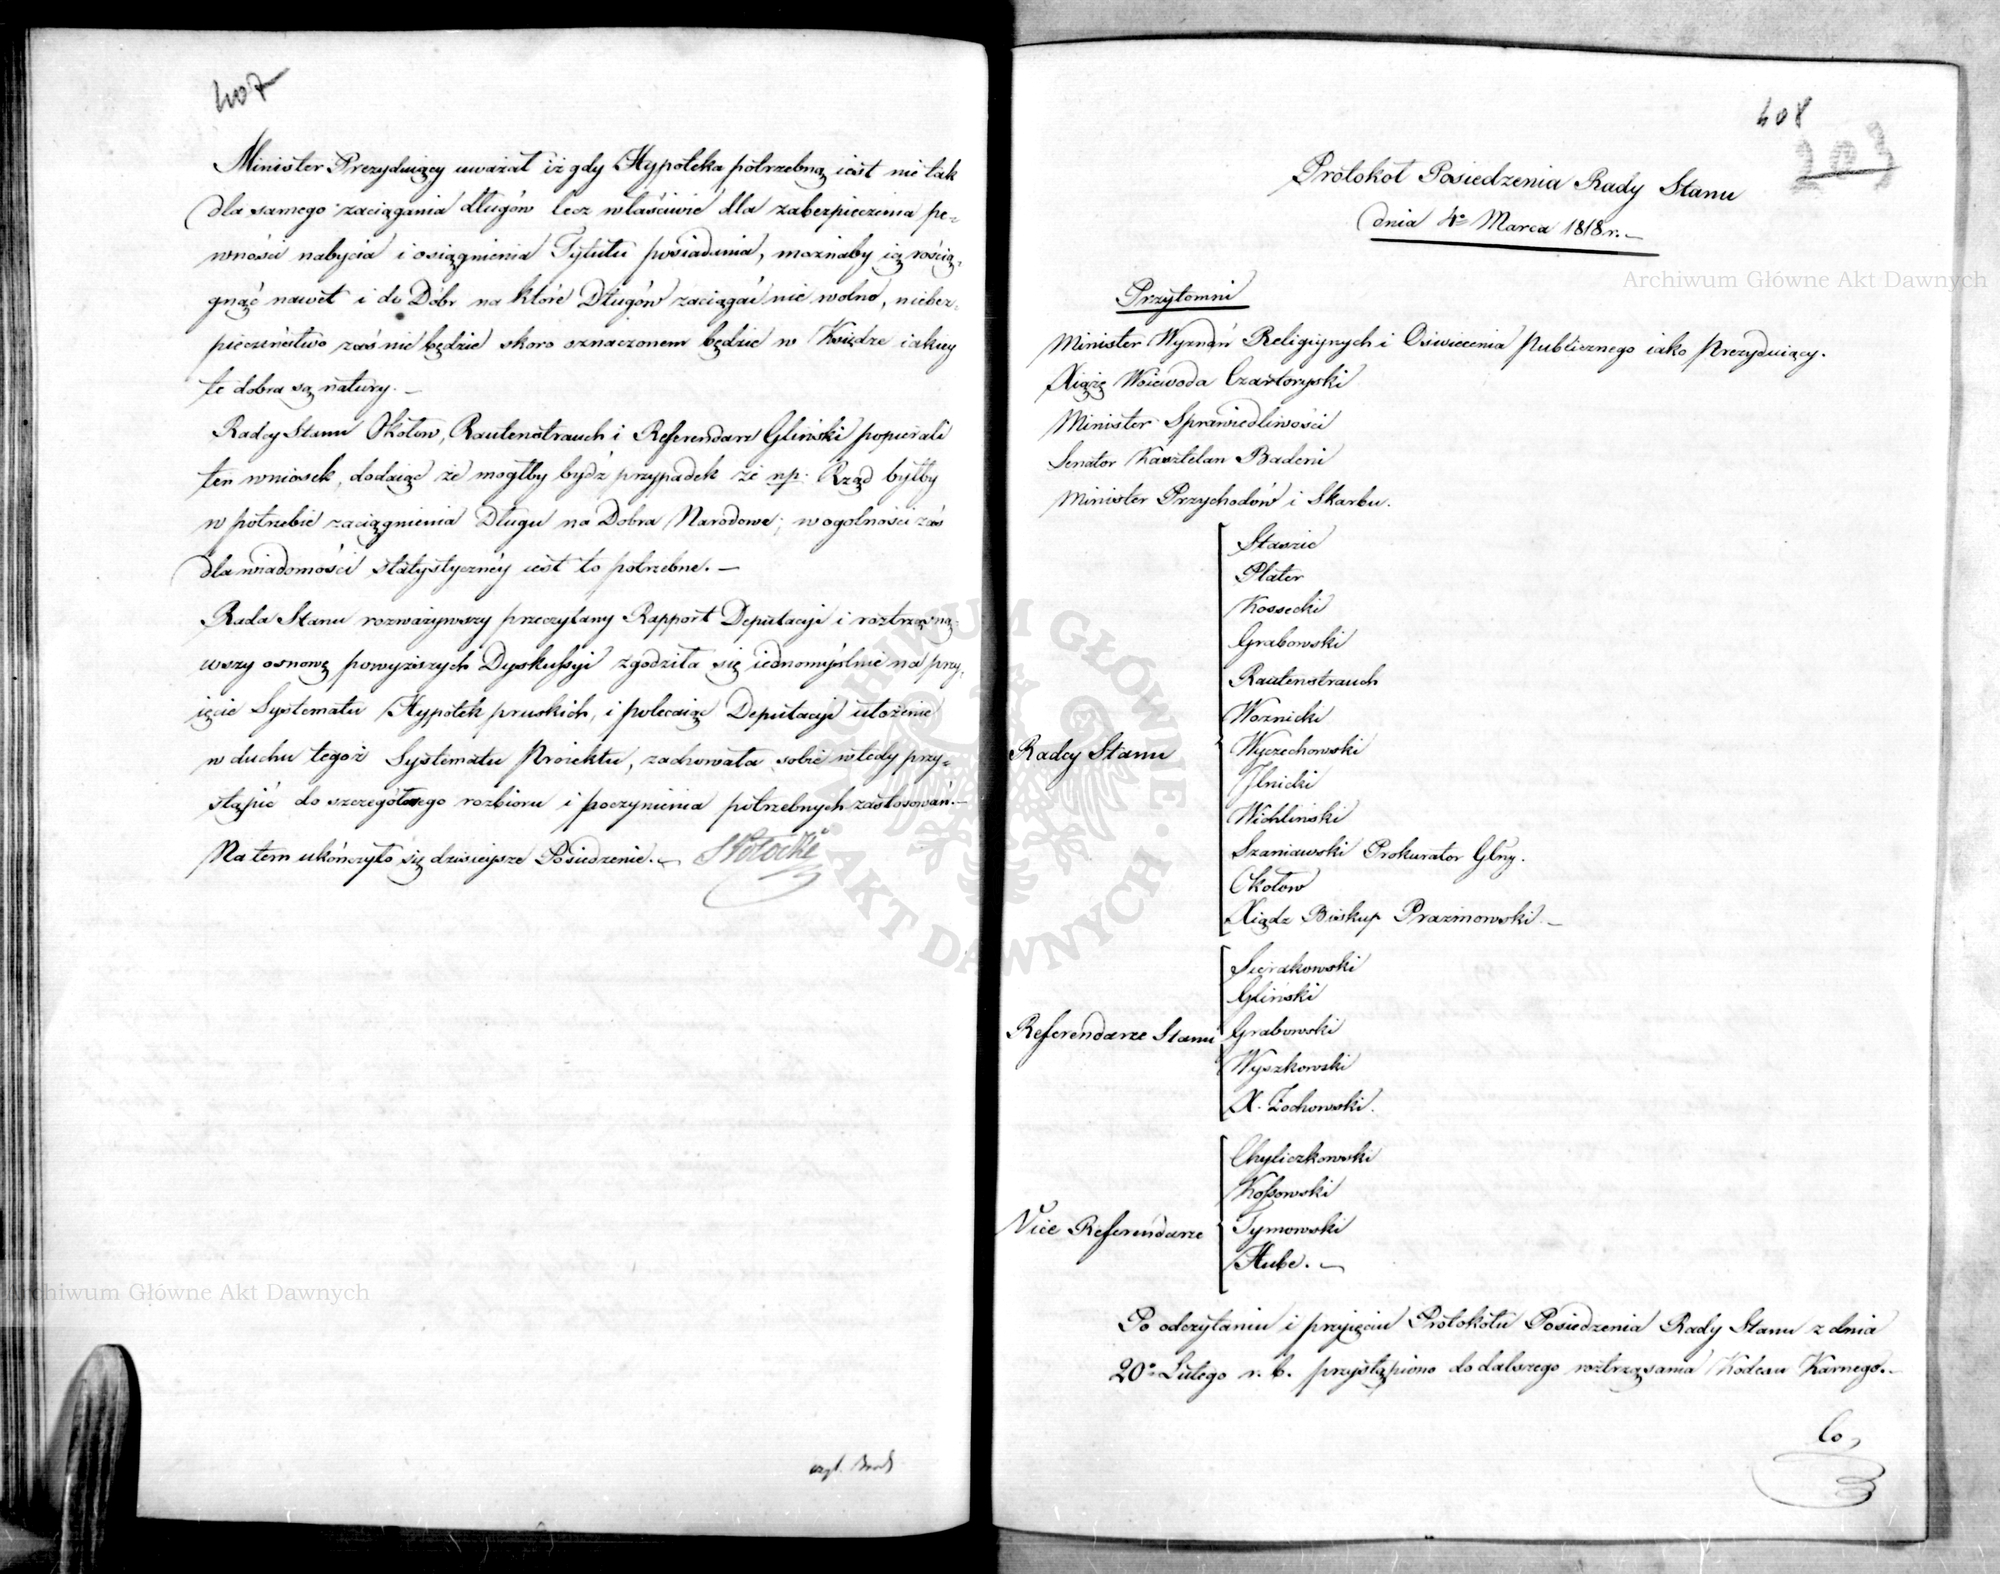 407
Minister Prezyduiący uważał iż gdy Hypoteka potrzebną iest nie tak
dla samego zaciągania długów lecz właściwie dla zabezpieczenia pe-
wności nabycia i osiągnienia Tytułu posiadania, możnaby ią rością-
gnąć nawet i do Dóbr na które Długów zaciągać nie wolno, niebez-
pieczeństwo zaś nie będzie skoro oznaczonem będzie w Księdze iakiey
te dobra są natury. —
Radcy Stanu Okołow, Rautenstrauch i Referendarz Gliński popierali
ten wniosek, dodaiąc że mogłby bydź przypadek że np. Rząd byłby
w potrzebie zaciągnienia Długu na Dobra Narodowe; w ogolności zaś
dla wiadomości statystyczney iest to potrzebne. —
Rada Stanu rozważywszy przeczytany Rapport Deputacyi i roztrząsną-
wszy osnowę powyższych Dyskussyi zgodziła się iednomyślnie na przy-
ięcie Systematu Hypotek pruskich, i polecaiąc Deputacyi ułożenie
w duchu tegoż Systematu Proiektu, zachowała sobie wtedy przy-
stąpić do szczegółowego rozbioru i poczynienia potrzebnych zastosowań. —
Na tem ukończyło się dzisieysze Posiedzenie. — SPotocki
408
203
Protokół Posiedzenia Rady Stanu
dnia 4º Marca 1818 r. —
Przytomni
Minister Wyznań Religiynych i Oświecenia Publicznego iako Prezyduiący.
Xiążę Woiewoda Czartoryski
Minister Sprawiedliwości
Senator Kasztelan Badeni
Minister Przychodów i Skarbu.
Radcy Stanu
Staszic
Plater
Kossecki
Grabowski
Rautenstrauch
Woznicki
Wyczechowski
Ilnicki
Wichliński
Szaniawski Prokurator Glny.
Okołow
Xiądz Biskup Prazmowski. —
Referendarze Stanu
Sierakowski
Gliński
Grabowski
Wyszkowski
X. Żochowski.
Vice Referendarze
Chyliczkowski
Koßowski
Tymowski
Hube. —
Po odczytaniu i przyięciu Protokółu Posiedzenia Rady Stanu z dnia
20º Lutego r. b. przystąpiono do dalszego roztrząsania Kodexu Karnego. —
Co
Archiwum Główne Akt Dawnych
Archiwum Główne Akt Dawnych
ARCHIWUM GŁÓWNE AKT DAWNYCH